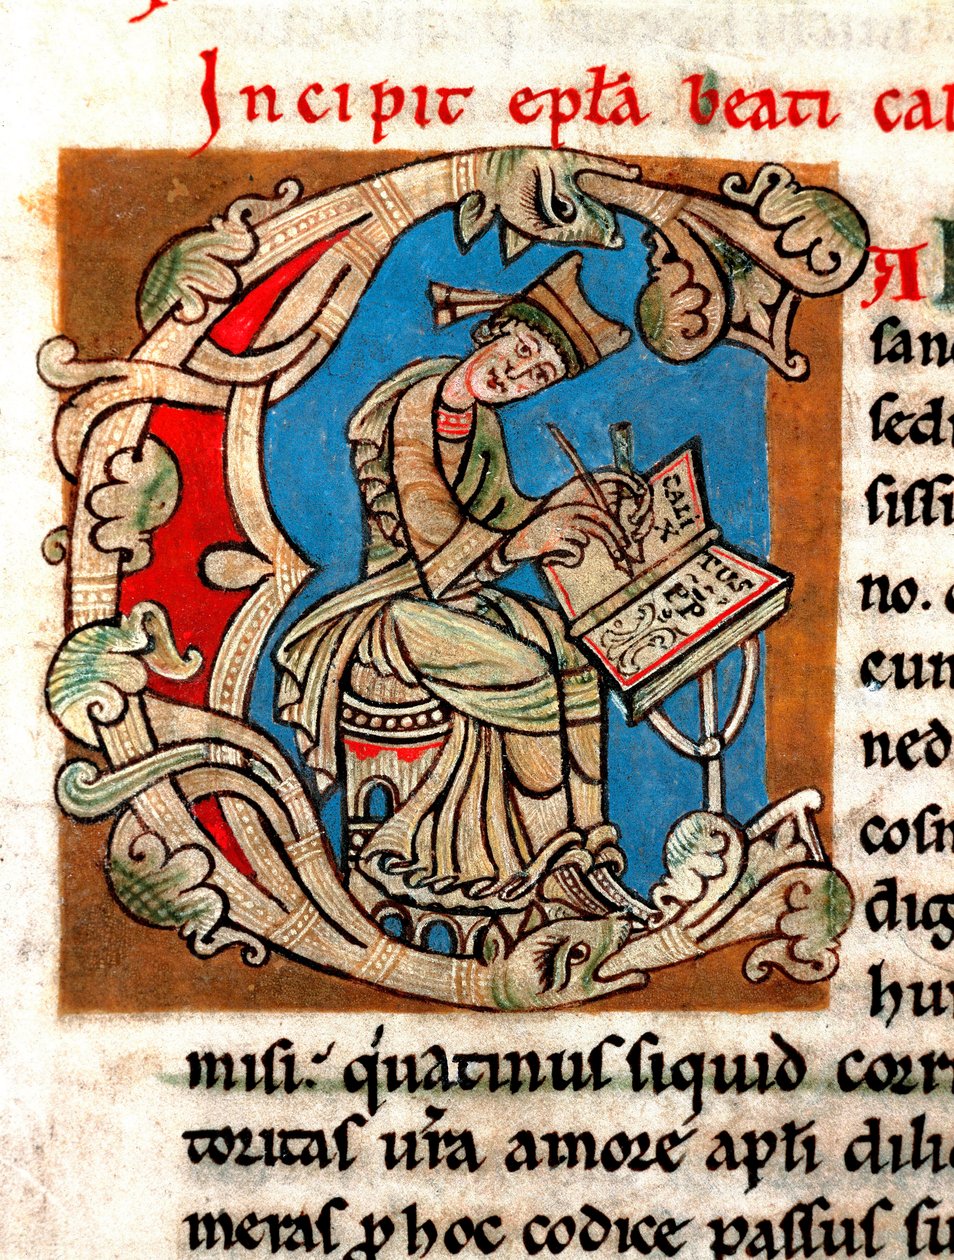 Incipit epła beati cal
A
sanc
sedi
sissi
no. c
cum
ned
cosm
dig
hu
CALI
X
TUS
PP
misi. quatinus siquid corr
toritas ura amore apłi dili
meras p hoc codice passus su